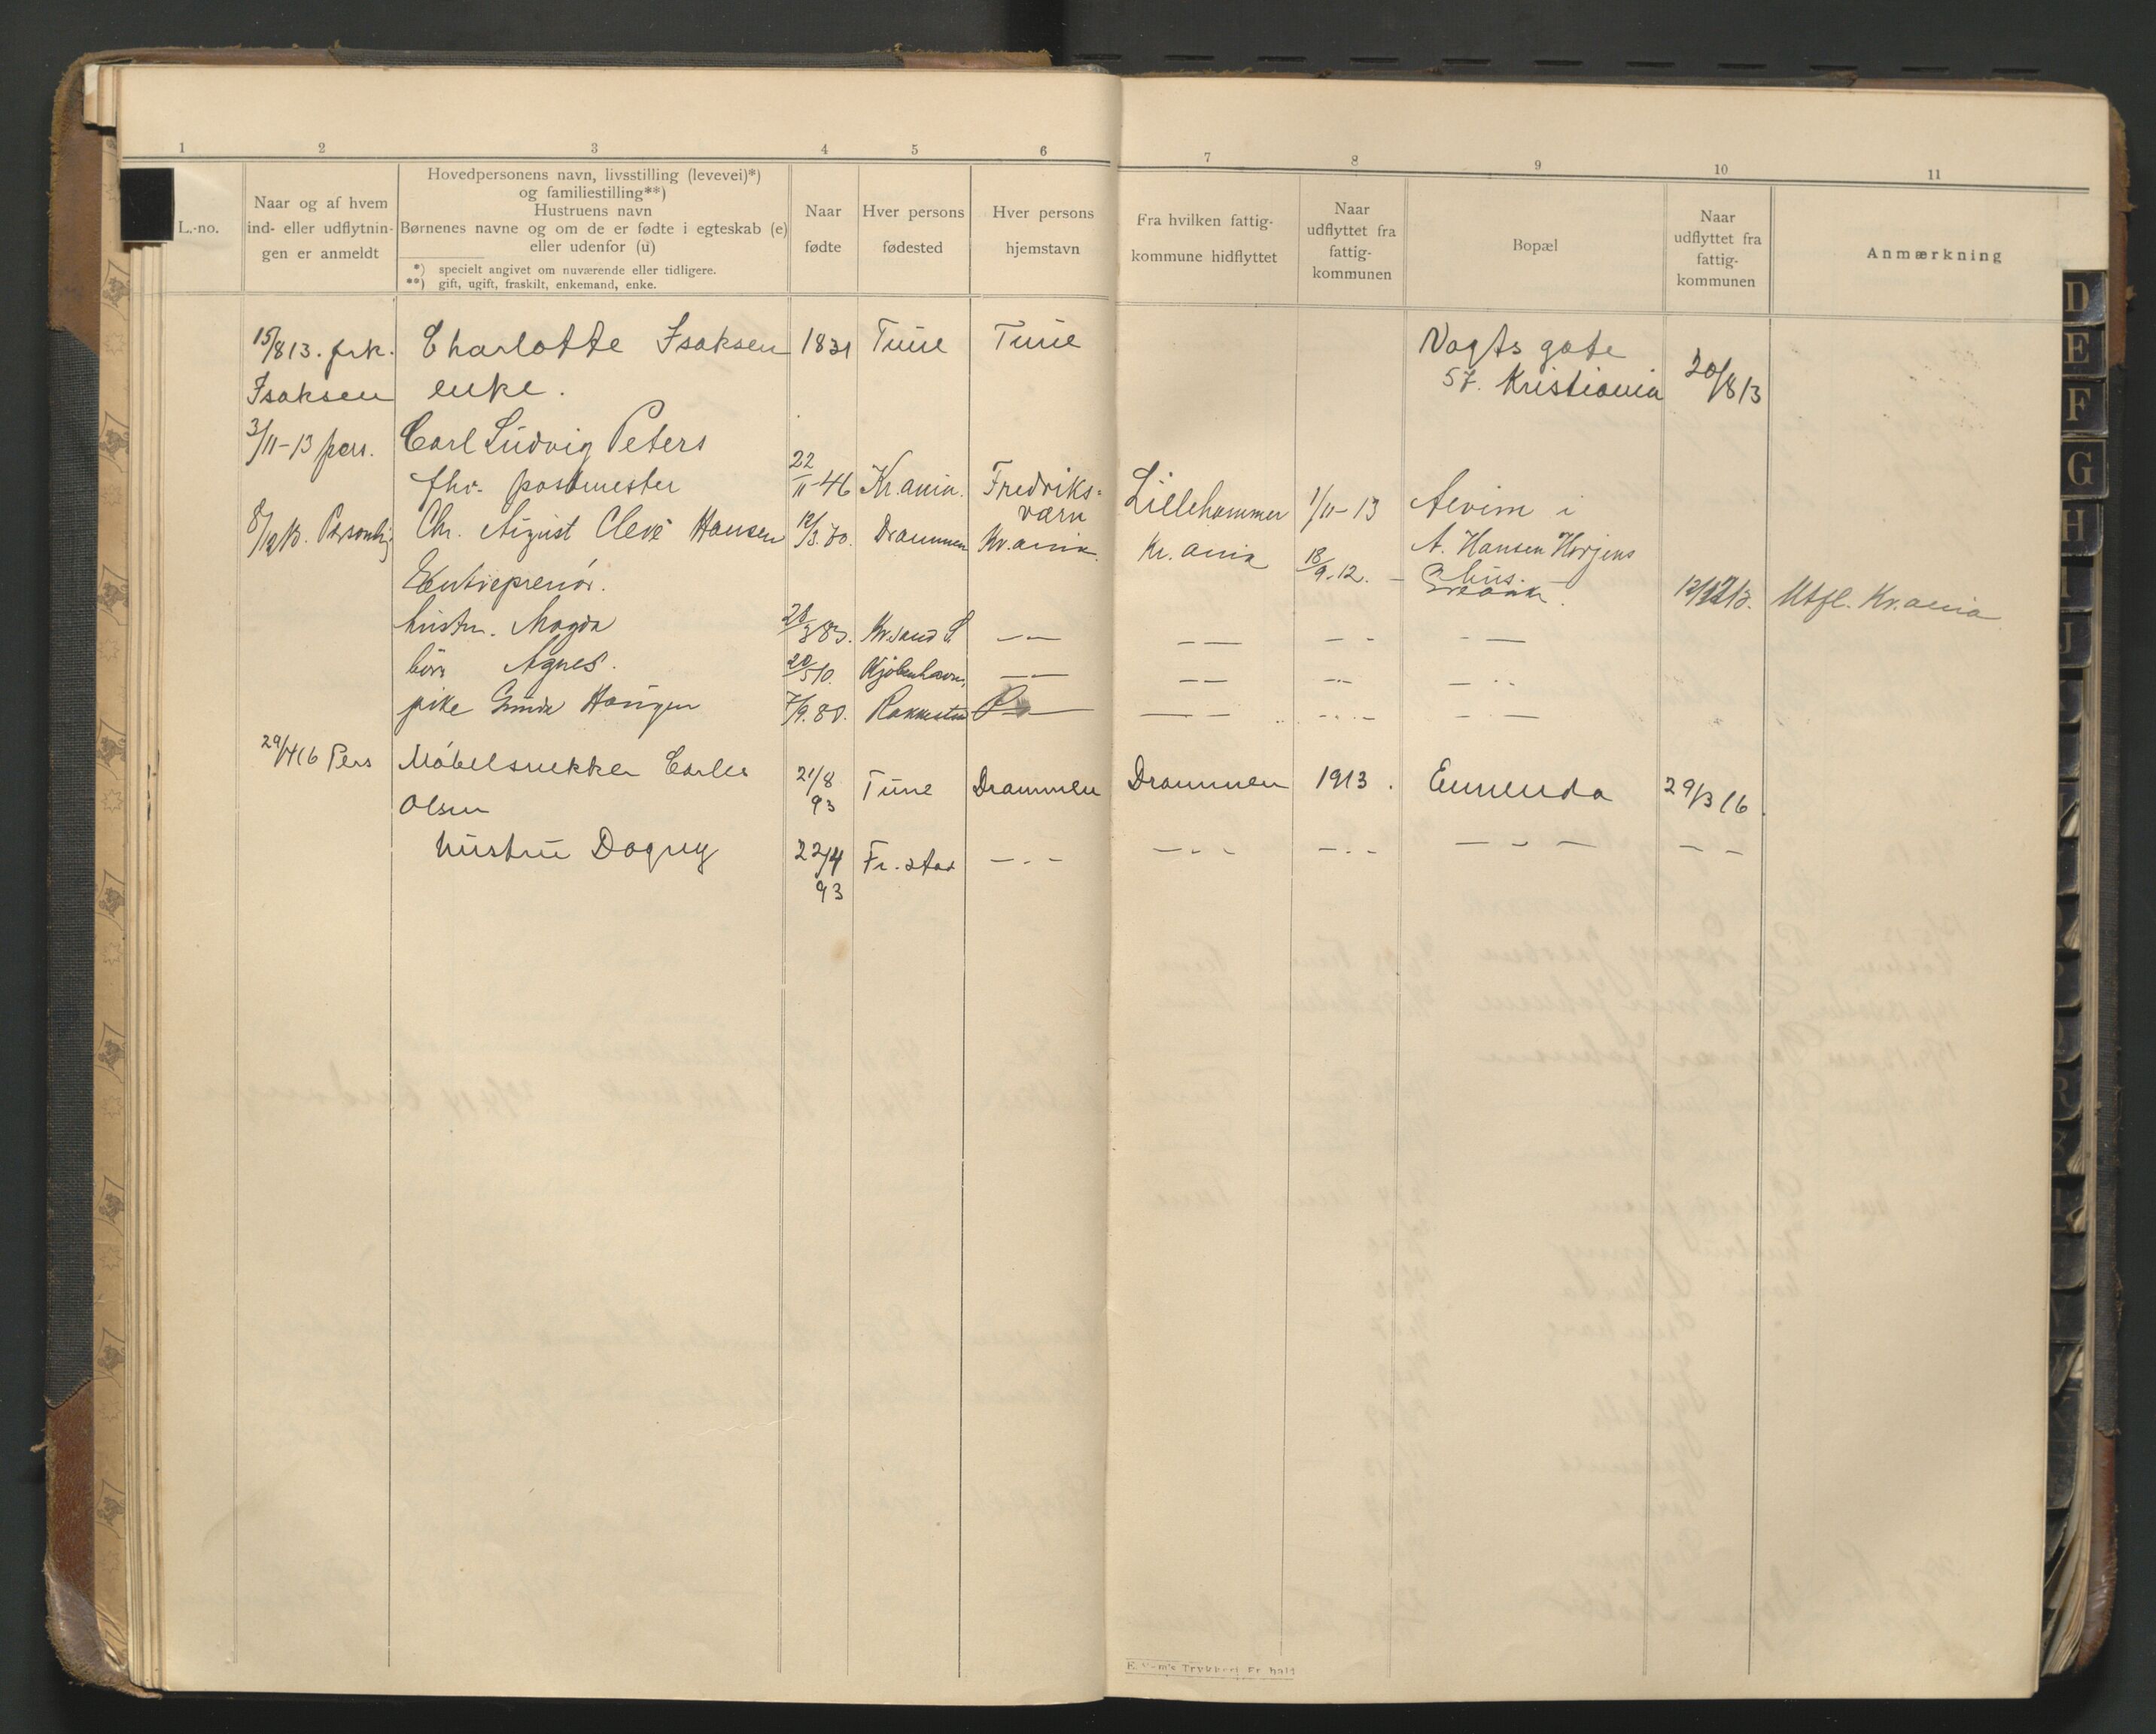 1 2 3 4 5 6 7 8 9 10 11
L.-no.
Naar og af hvem
ind- eller udflytnin-
gen er anmeldt
Hovedpersonens navn, livsstilling (levevei)*)
og familiestilling**)
Hustruens navn
Børnenes navne og om de er fødte i egteskab (e)
eller udenfor (u)
*) specielt angivet om nuværende eller tidligere.
**) gift, ugift, fraskilt, enkemand, enke.
Naar
fødte
Hver persons
fødested
Hver persons
hjemstavn
Fra hvilken fattig-
kommune hidflyttet
Naar
udflyttet fra
fattig-
kommunen
Bopæl
Naar
udflyttet fra
fattig-
kommunen
Anmærkning
15/8 13. frk. Charlotte Isaksen 1831 Tune Tune Vogts gate
Isaksen enke. 57. Kristiania 20/8 13
3/11-13 pers. Carl Ludvig Peters
fhv. postmester 22/11-46 Kr.ania. Fredriks- Lillehammer 1/11-13 Alvim i
værn
8/12 13. Personlig Chr. August Cleve Hansen 12/3. 80. Drammen Kr.ania. Kr. ania 18/9-12. — A. Hansen Horjens
hus.
Entreprenør. 12/12 13. Utfl. Kr.ania
hustr. Magda 83. Kr.sand S. —"— — — — - - —
barn Agnes. 20/5 10. Kjøbenhavn, — — — — —
pike Haugen 7/9. 80. Rakkestad — — — —
29/4 16 Pers Møbelsnekker Carler 21/8 Tune Drammen Drammen 1913. Enenda 29/3 16.
Olsen 93
hustru Dagny 22/4 Fr.stad — - - — - - — - - — - — — —
93
D
E
F
G
H
I
J